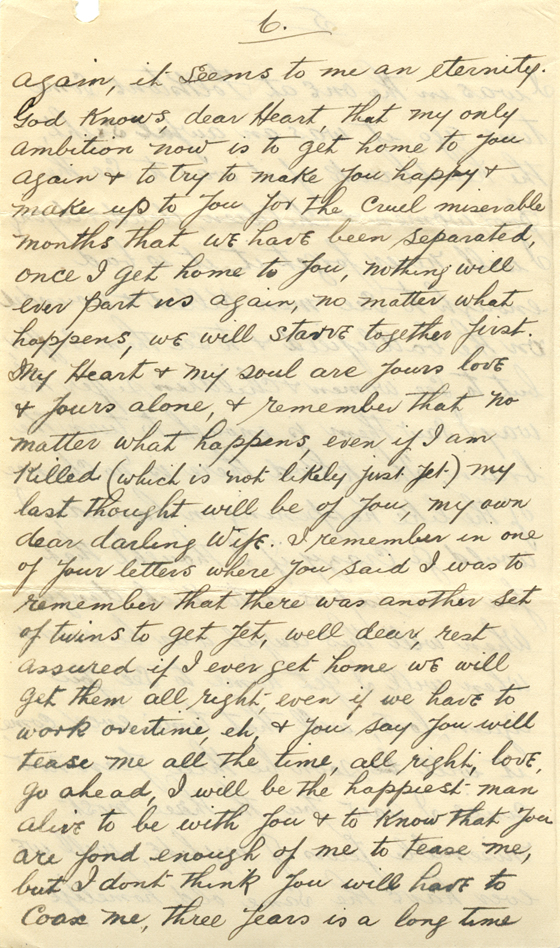 6.
again, it seems to me an eternity.
God Knows, dear Heart, that my only
ambition now is to get home to you
again & to try to make you happy &
make up to you for the cruel miserable
months that we have been separated,
once I get home to you, nothing will
ever part us again, no matter what
happens, we will starve together first.
My Heart & my soul are yours love
& yours alone, & remember that no
matter what happens, even if I am
Killed (which is not likely just yet) my
last thought will be of you, my own
dear darling Wife. I remember in one
of your letters where you said I was to
remember that there was another set
of twins to get yet, well dear, rest
assured if I ever get home we will
get them all right, even if we have to
work overtime, eh, & you say you will
tease me all the time, all right, love,
go ahead, I will be the happiest man
alive to be with you & to Know that you
are fond enough of me to tease me,
but I dont think you will have to
Coax me, three years is a long time